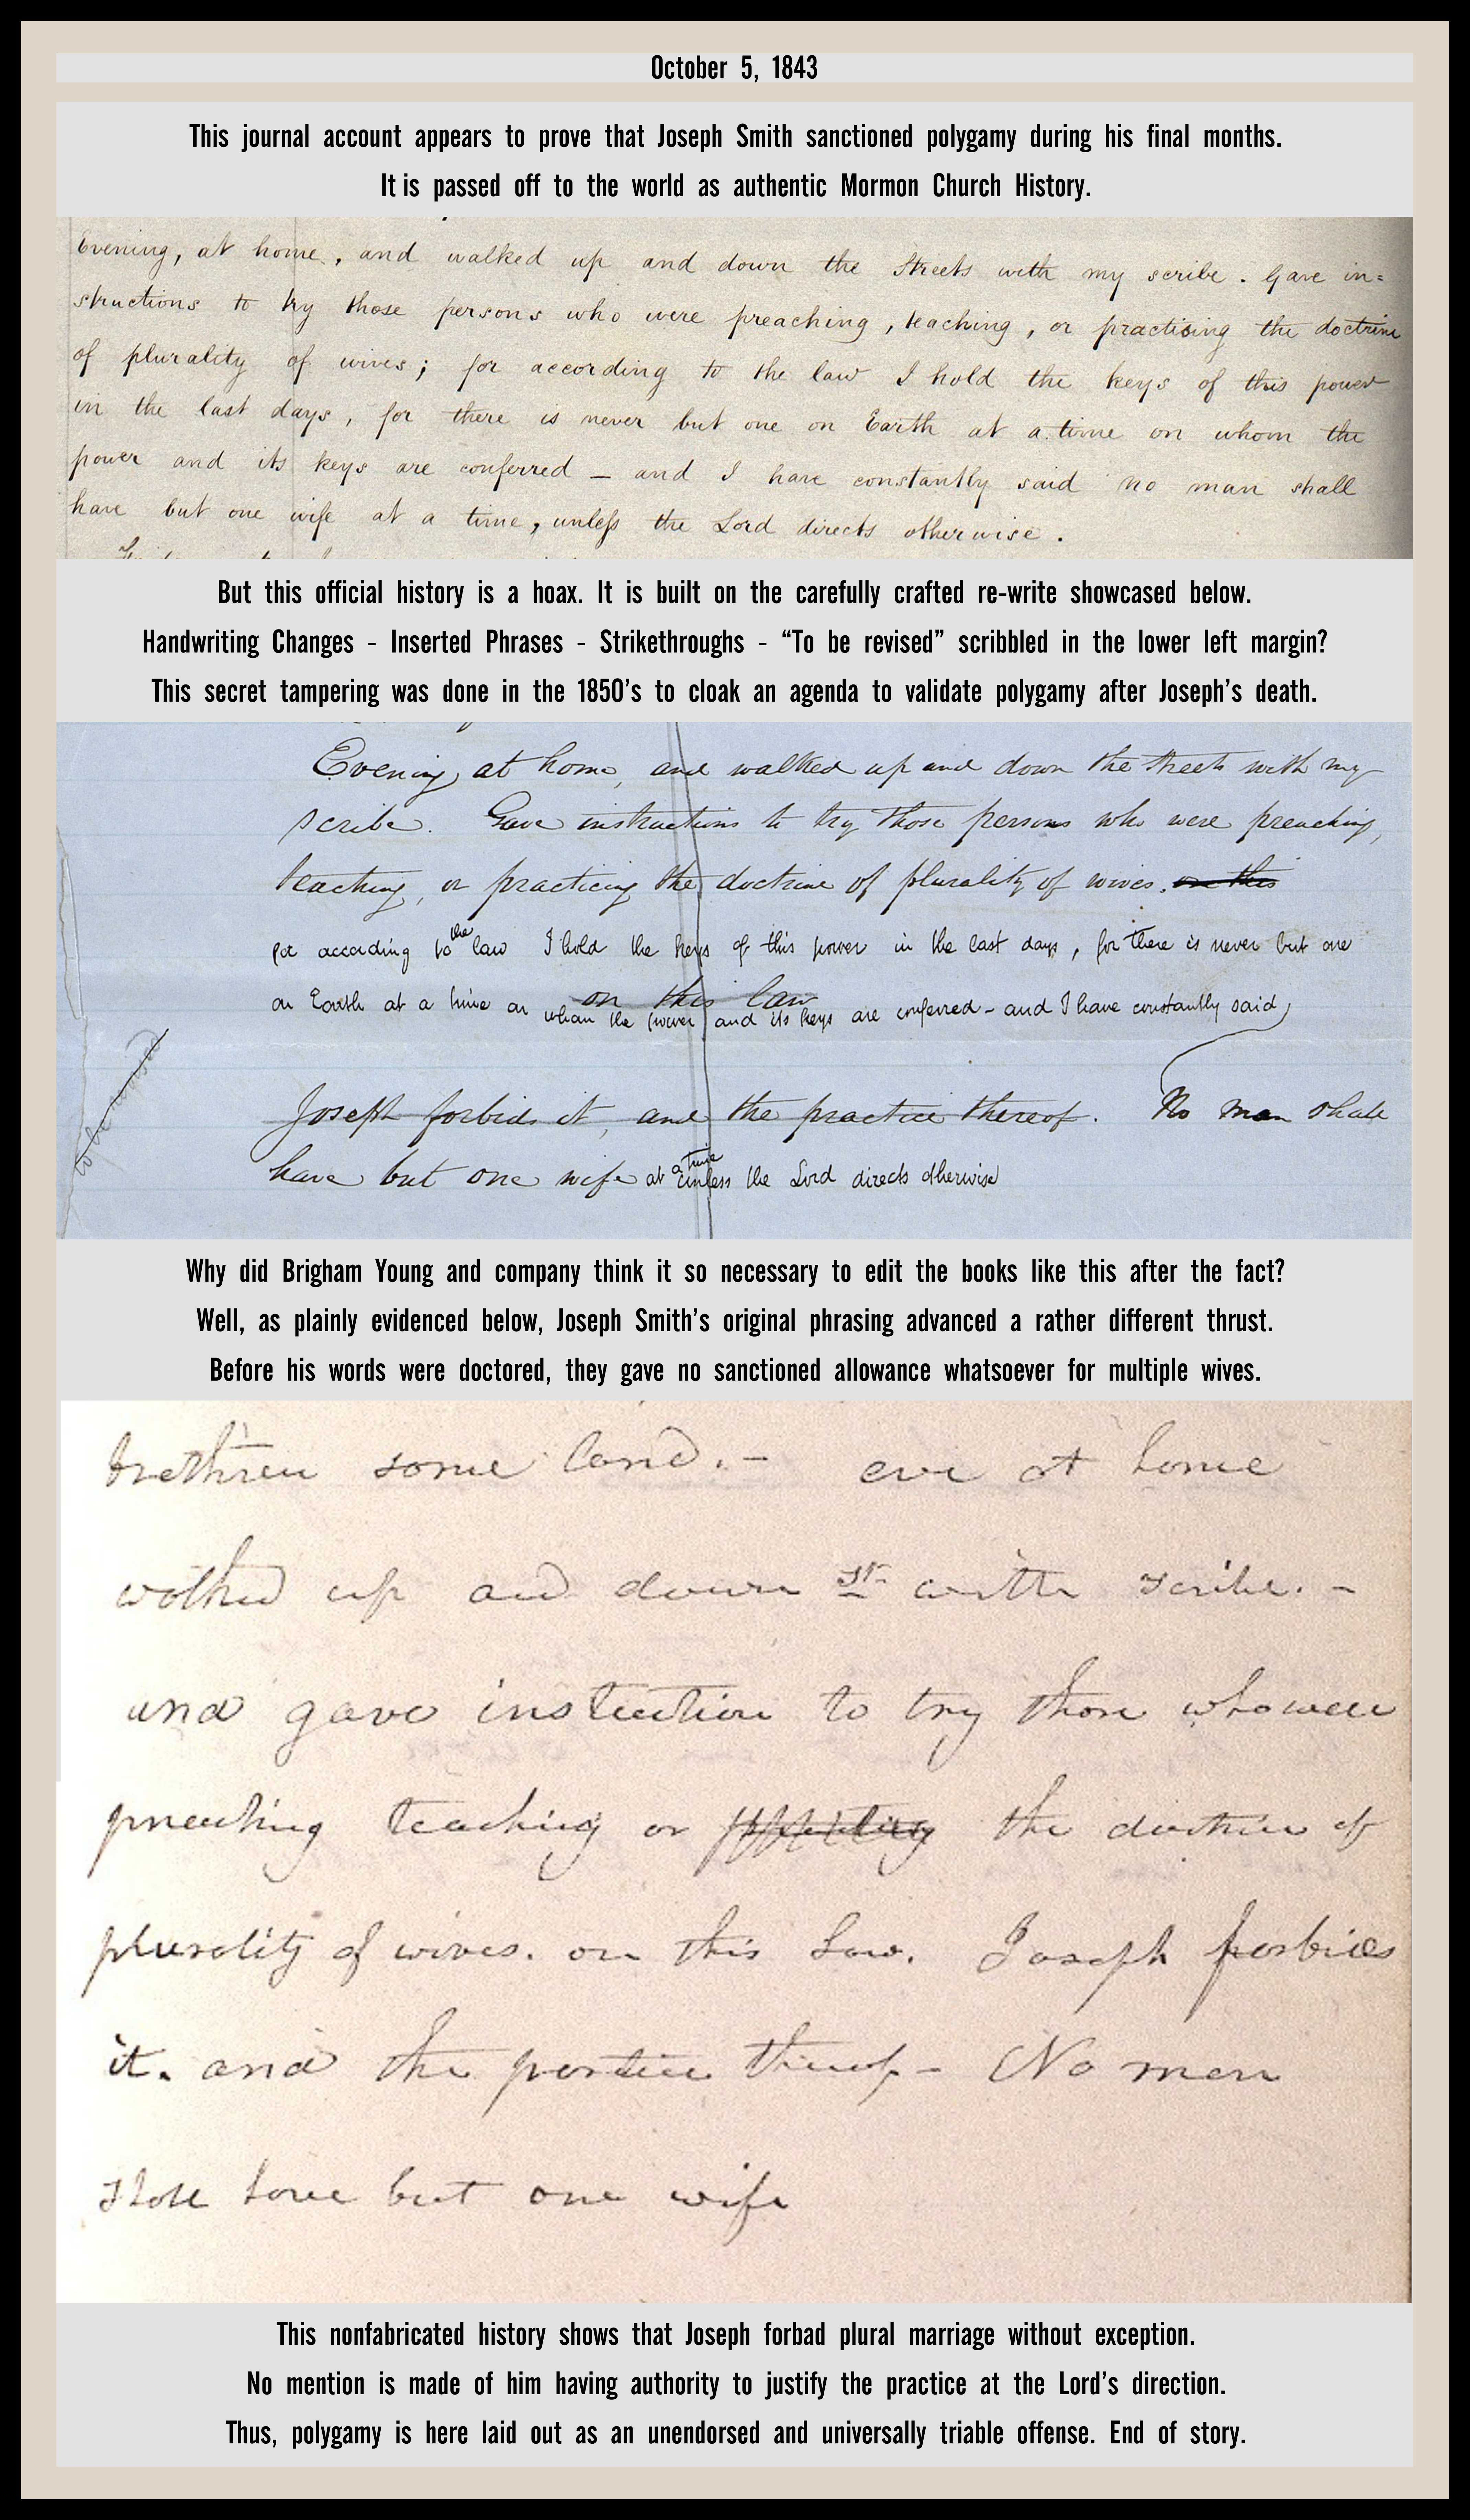 October 5, 1843
This journal account appears to prove that Joseph Smith sanctioned polygamy during his final months.
It is passed off to the world as authentic Mormon Church History.
Evening, at home, and walked up and down the Streets with my scribe. Gave in=
structions to try those persons who were preaching, teaching, or practising the doctrine
of plurality of wives; for according to the law I hold the keys of this power
in the last days, for there is never but one on Earth at a time on whom the
power and its keys are conferred – and I have constantly said no man shall
have but one wife at a time, unless the Lord directs otherwise.
But this official history is a hoax. It is built on the carefully crafted re-write showcased below.
Handwriting Changes - Inserted Phrases - Strikethroughs - “To be revised” scribbled in the lower left margin?
This secret tampering was done in the 1850’s to cloak an agenda to validate polygamy after Joseph’s death.
Evening, at home, and walked up and down the streets with my
scribe. Gave instructions to try those persons who were preaching,
teaching, or practicing the doctrine of plurality of wives. on this
for according to the law I hold the keys of this power in the last days, for there is never but one
on this law
on Earth at a time on whom the power and its keys are conferred – and I have constantly said
to be revised
Joseph forbids it, and the practice thereof. No man shall
have but one wife at a time unless the Lord directs otherwise
Why did Brigham Young and company think it so necessary to edit the books like this after the fact?
Well, as plainly evidenced below, Joseph Smith’s original phrasing advanced a rather different thrust.
Before his words were doctored, they gave no sanctioned allowance whatsoever for multiple wives.
brethren some land. – eve at home
walked up and down St with scribe. –
and gave instruction to try those who were
preaching teaching or the doctrine of
plurality of wives. on this Law. Joseph forbids
it. and the practice thereof – No man
shall have but one wife
This nonfabricated history shows that Joseph forbad plural marriage without exception.
No mention is made of him having authority to justify the practice at the Lord’s direction.
Thus, polygamy is here laid out as an unendorsed and universally triable offense. End of story.